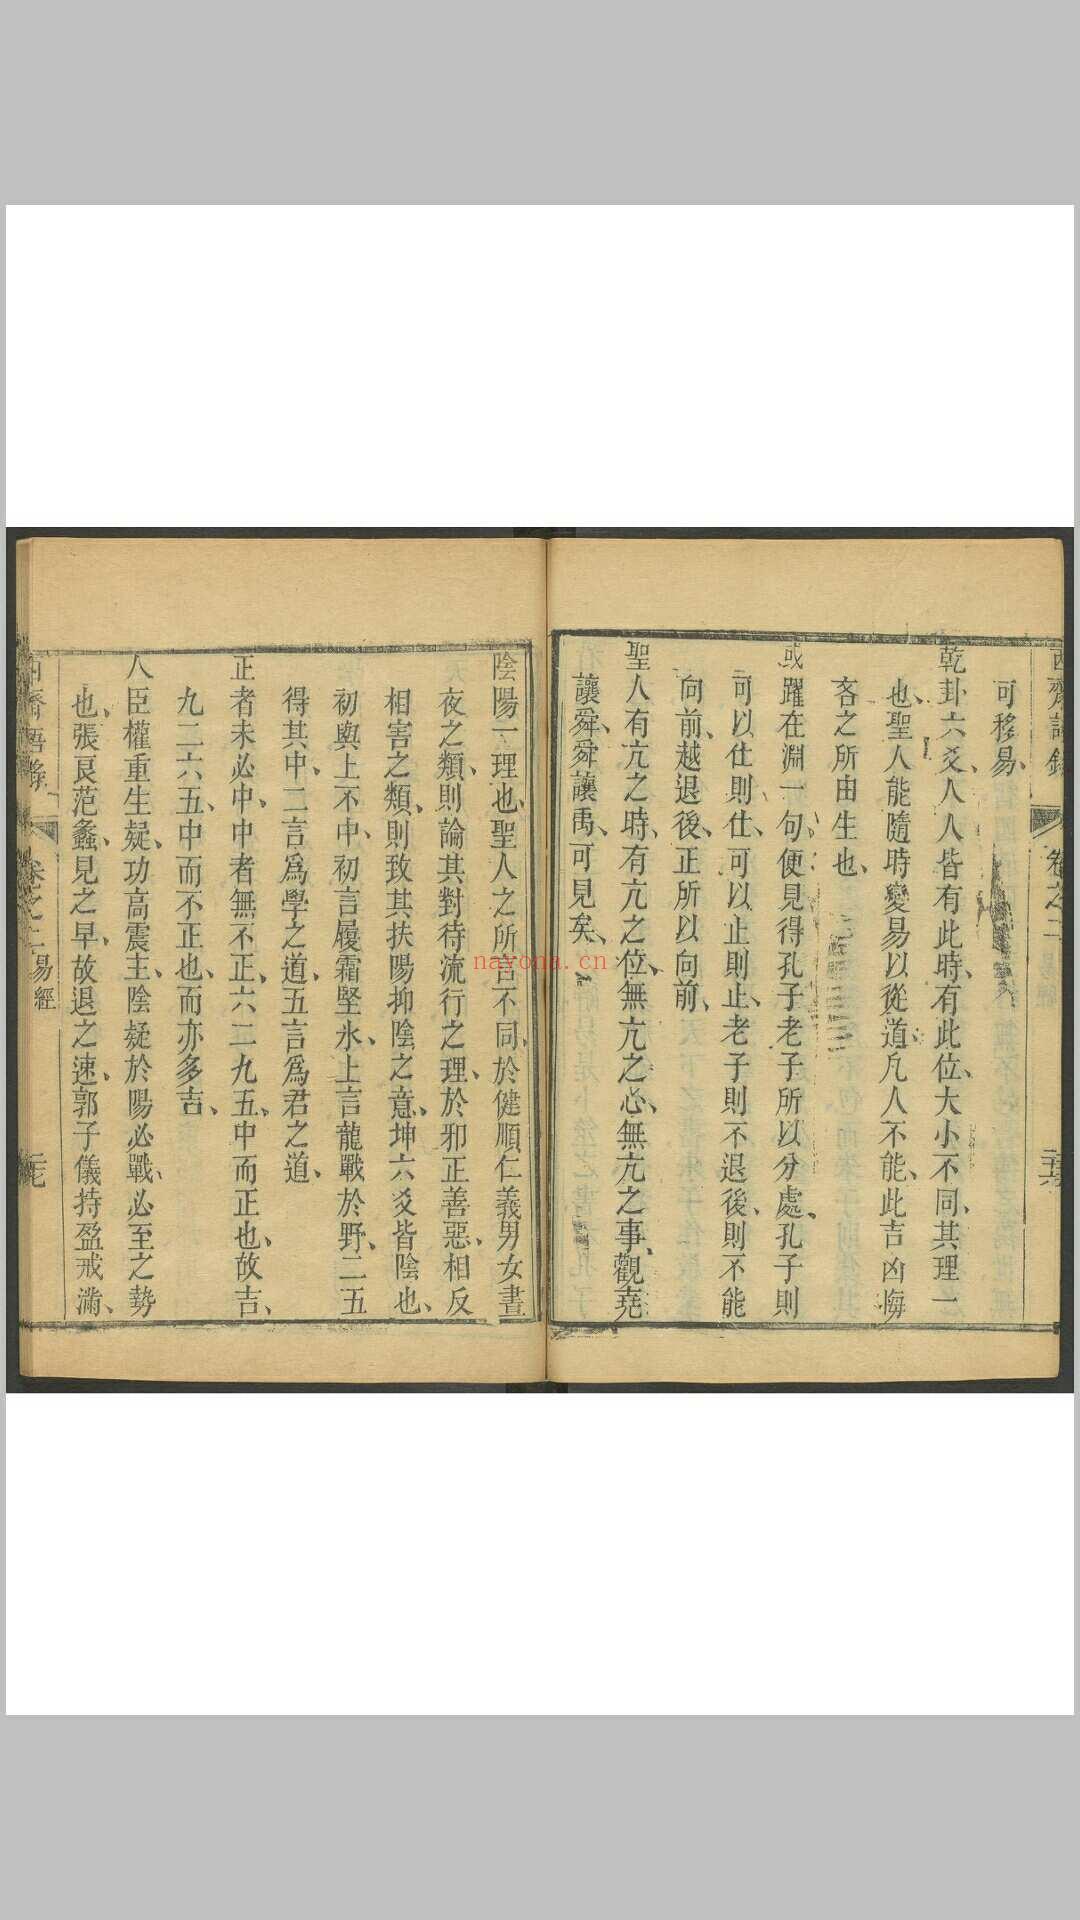 西齋語錄 卷之二 二十六
可移易、
乾卦六爻、人人皆有此時、有此位、大小不同、其理一
也、聖人能隨時變易以從道、凡人不能、此吉凶悔
吝之所由生也、
或躍在淵一句便見得孔子老子所以分處、孔子則
可以仕則仕、可以止則止、老子則不退後、則不能
向前、越退後、正所以向前、
聖人有亢之時、有亢之位、無亢之心、無亢之事、觀堯
讓舜、舜讓禹、可見矣、
陰陽一理也、聖人之所言不同、於健順仁義男女晝
夜之類、則論其對待流行之理、於邪正善惡、相反
相害之類、則致其扶陽抑陰之意、坤六爻皆陰也、
初與上不中、初言履霜堅氷、上言龍戰於野、二五
得其中、二言爲學之道、五言爲君之道、
正者未必中、中者無不正、六二九五、中而正也、故吉、
九二六五、中而不正也、而亦多吉、
人臣權重生疑、功高震主、陰疑於陽必戰、必至之勢
也、張良范蠡、見之早、故退之速、郭子儀持盈戒滿、
西齋語錄 卷之二 易經 二十七
nayona.cn